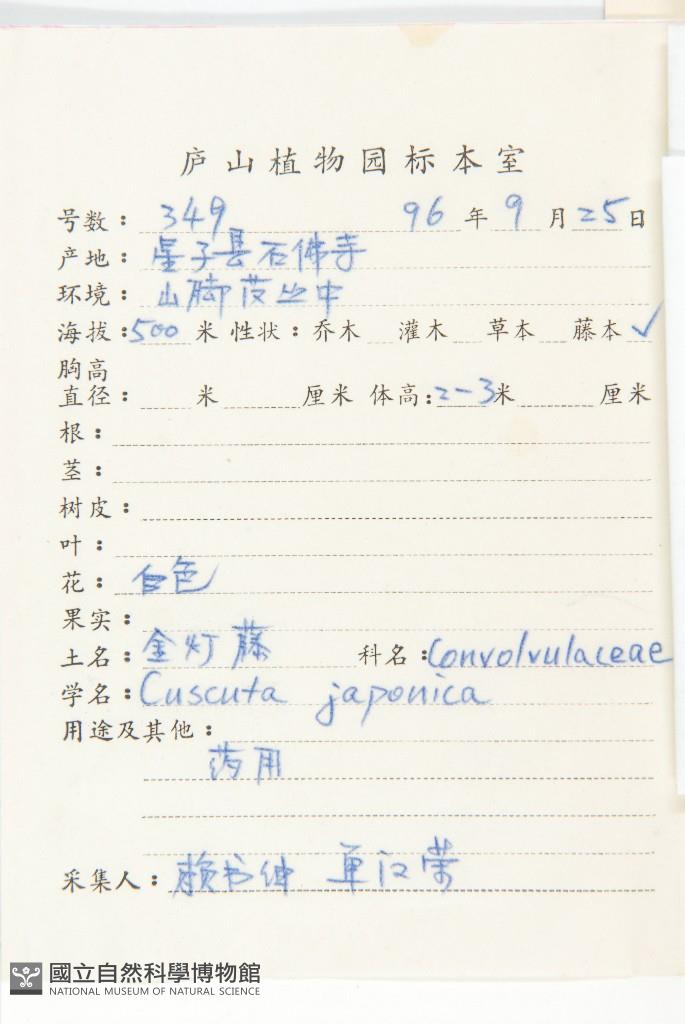 庐山植物园标本室
号数：349 96年9月25日
产地：星子县石佛寺
环境：山脚 丛中
海拔：500米 性状：乔木 灌木 草本 藤本 ✓
胸高
直径： 米 厘米 体高：2-3米 厘米
根：
茎：
树皮：
叶：
花：白色
果实：
土名：金灯藤 科名：Convolvulaceae
学名：Cuscuta japonica
用途及其他：
药用
采集人：赖书绅 单汉荣
國立自然科學博物館
NATIONAL MUSEUM OF NATURAL SCIENCE